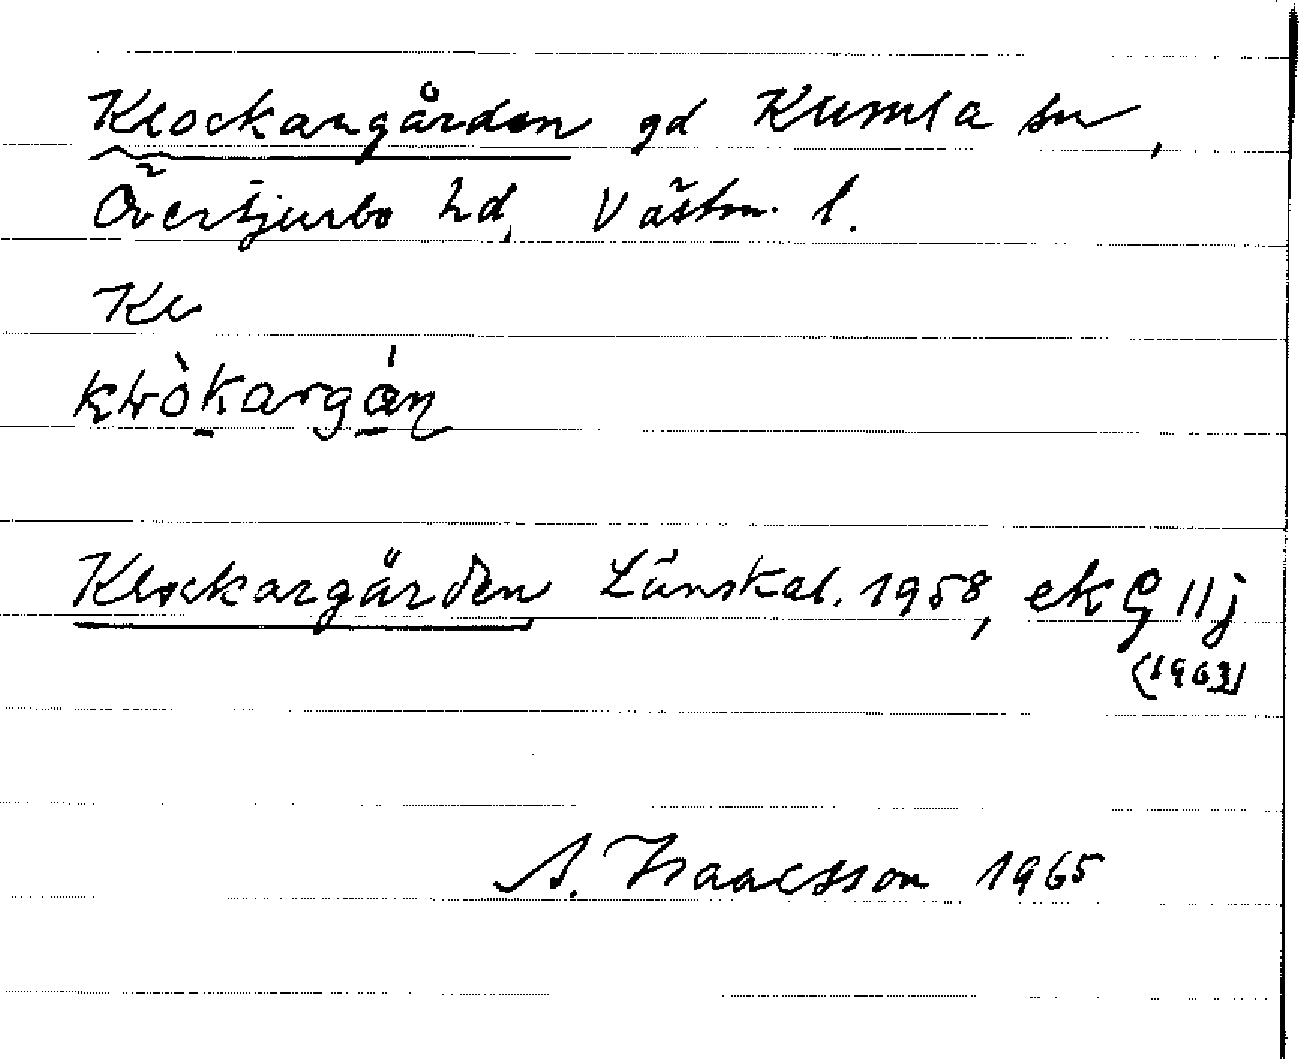 Klockargården gd Kumla sn,
Övertjurbo hd, Västm. l.
Kl
Klockargården Länskal. 1958, ek G 11j
(1963)
A. Isaacsson 1965